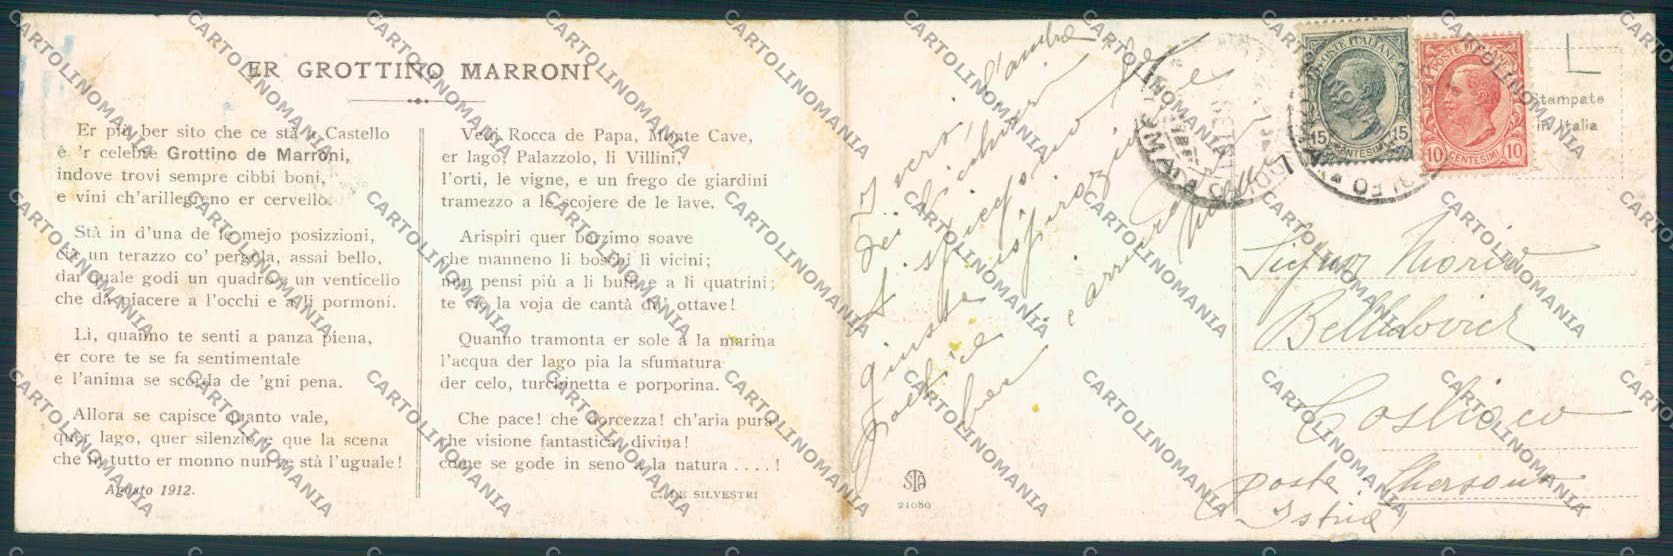 ER GROTTINO MARRONI
Er più ber sito che ce stà a Castello
è 'r celebre Grottino de Marroni,
indove trovi sempre cibbi boni,
e vini ch'arillegreno er cervello.
Stà in d'una de le mejo posizzioni,
cià un terazzo co' pergola, assai bello,
dar quale godi un quadro e un venticello
che dà piacere a l'occhi e a li pormoni.
Lì, quanno te senti a panza piena,
er core te se fa sentimentale
e l'anima se scorda de 'gni pena.
Allora se capisce quanto vale,
quer lago, quer silenzio e que la scena
che in tutto er monno nun ce stà l'uguale!
Agosto 1912.
Vedi Rocca de Papa, Monte Cave,
er lago, Palazzolo, li Villini,
l'orti, le vigne, e un frego de giardini
tramezzo a le scojere de le lave.
Arispiri quer barzimo soave
che manneno li boschi lì vicini;
nun pensi più a li buffi e a li quatrini;
te viè la voja de cantà du' ottave!
Quanno tramonta er sole a la marina
l'acqua der lago pia la sfumatura
der celo, turchinetta e porporina.
Che pace! che dorcezza! ch'aria pura
che visione fantastica, divina!
come se gode in seno a la natura ....!
C. DE SILVESTRI
È vero,
dei bicchieri
giusta ispirazione
poetica
e arrivare
STA
21080
POSTE ITALIANE
15 15
CENTESIMI
POSTE ITALIANE
10 10
CENTESIMI
L
Stampate
in Italia
Signor Marino
Cosliaco
poste Chersano
(Istria)
CARTOLINOMANIA